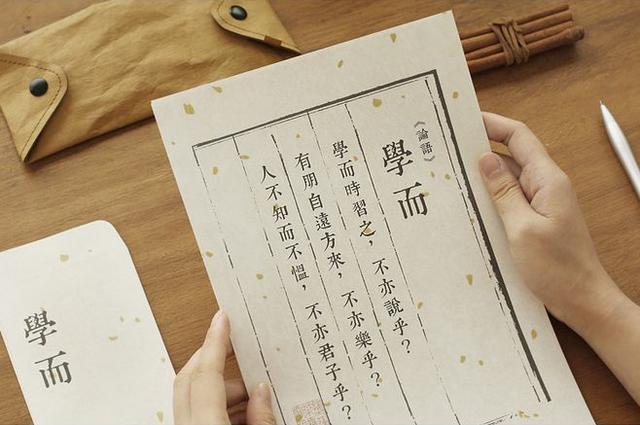 《論語》
學而
學而時習之，不亦說乎？
有朋自遠方來，不亦樂乎？
人不知而不慍，不亦君子乎？
學而